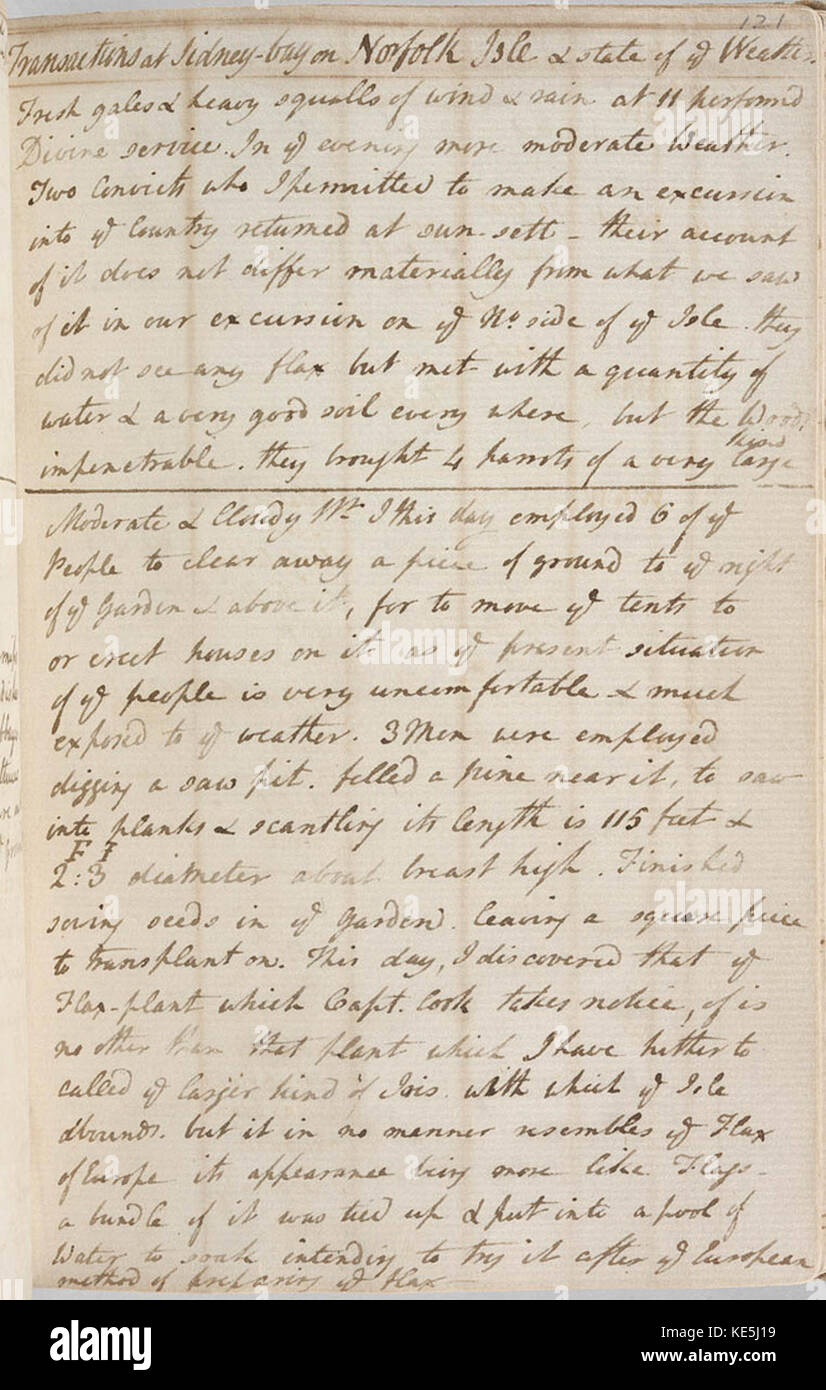 121
Transactions at Sidney-bay on Norfolk Isle & state of ye Weather.
Fresh gales & heavy squalls of wind & rain at 11 performed
Divine service. In ye evening more moderate Weather.
Two Convicts who I permitted to make an excursion
into ye Country returned at sun-sett - their account
of it does not differ materially from what we saw
of it in our excursion on ye No. side of ye Isle. they
did not see any flax but met with a quantity of
water & a very good soil every where, but the Woods
impenetrable. they brought 4 parrots of a very large
Moderate & Cloudy Wr. I this day employed 6 of ye
People to clear away a piece of ground to ye right
of ye Garden & above it, for to move ye tents to
or erect houses on it as ye present situation
of ye people is very uncomfortable & much
exposed to ye weather. 3 Men were employed
digging a saw pit. felled a pine near it, to saw
into planks & scantling its length is 115 feet &
F I
2:3 diameter about breast high. Finished
sowing seeds in ye Garden. leaving a square piece
to transplant on. This day, I discovered that ye
Flax-plant which Capt. Cook takes notice, of is
no other than that plant which I have hitherto
called ye larger kind of Iris. with which ye Isle
abounds. but it in no manner resembles ye Flax
of Europe its appearance being more like Flags-
a bundle of it was tied up & put into a pool of
Water to soak intending to try it after ye European
method of preparing ye Flax-
alamy
Image ID: KE5J19
www.alamy.com